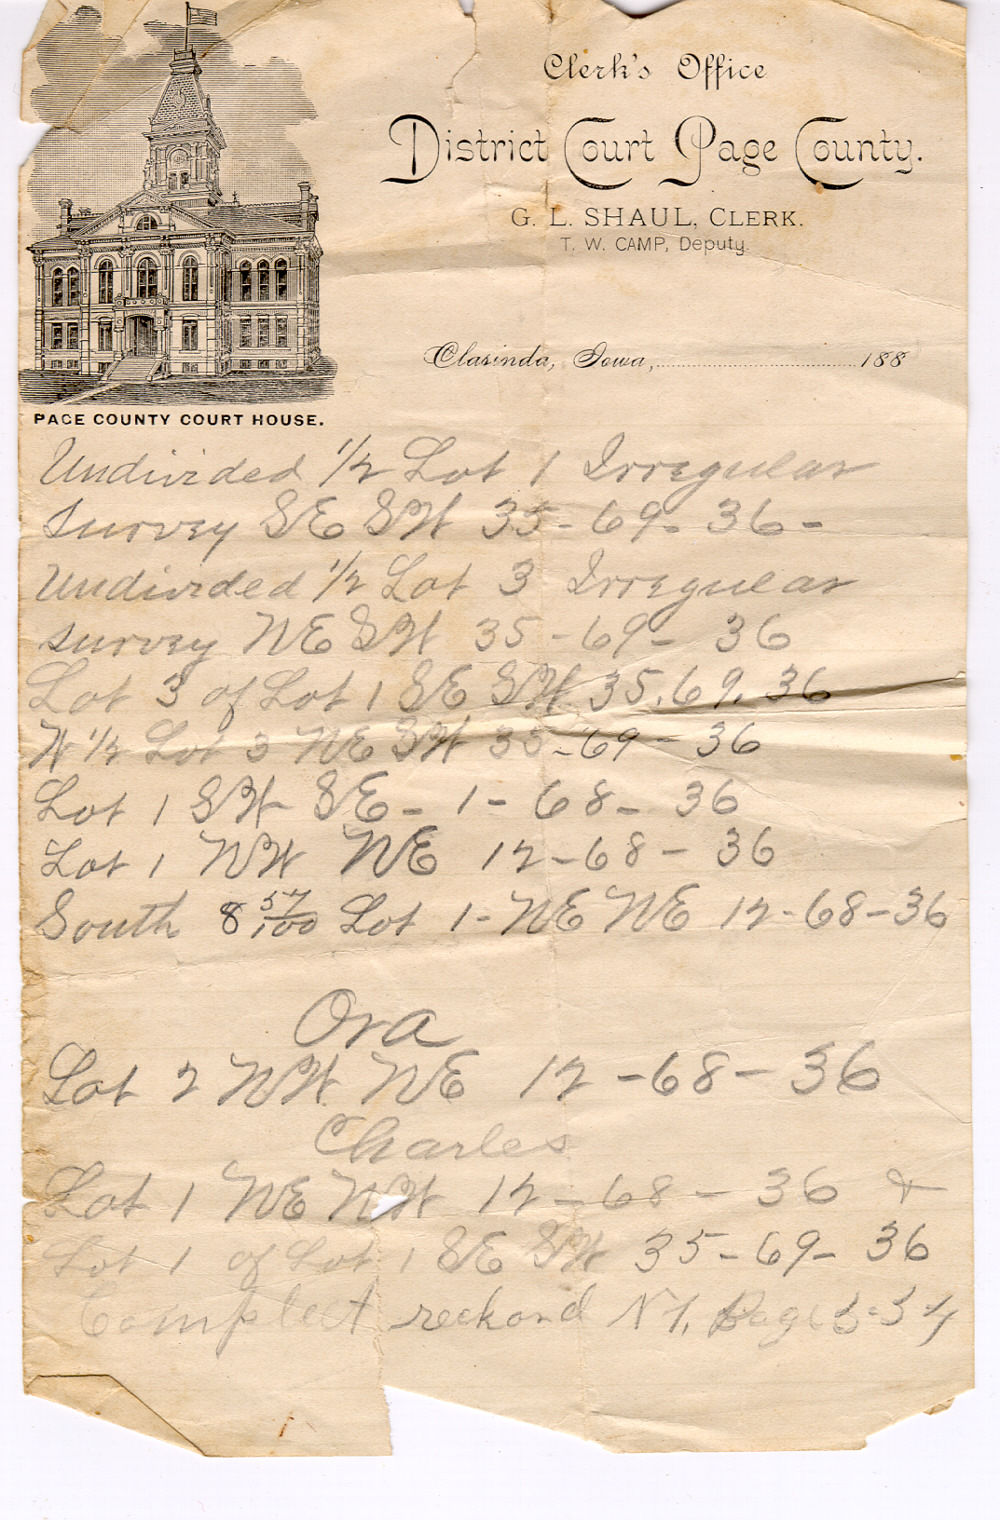 Clerk's Office
District Court Page County.
G. L. SHAUL, CLERK.
T. W. CAMP, Deputy.
Clarinda, Iowa, 188
PAGE COUNTY COURT HOUSE.
Undivided 1/2 Lot 1 Irregular
survey SE SW 35-69-36-
Undivided 1/2 Lot 3 Irregular
survey NE SW 35-69-36
Lot 3 of Lot 1 SE SW 35.69.36
W 1/2 Lot 3 NE SW 35-69-36
Lot 1 SW SE-1-68-36
Lot 1 NW NE 12-68-36
South 8 57/100 Lot 1-NE NE 12-68-36
Ora
Lot 2 NW NE 12-68-36
Charles
Lot 1 NE NW 12-68-36 &
Lot 1 of Lot 1 SE SW 35-69-36
Compleet reckord Page